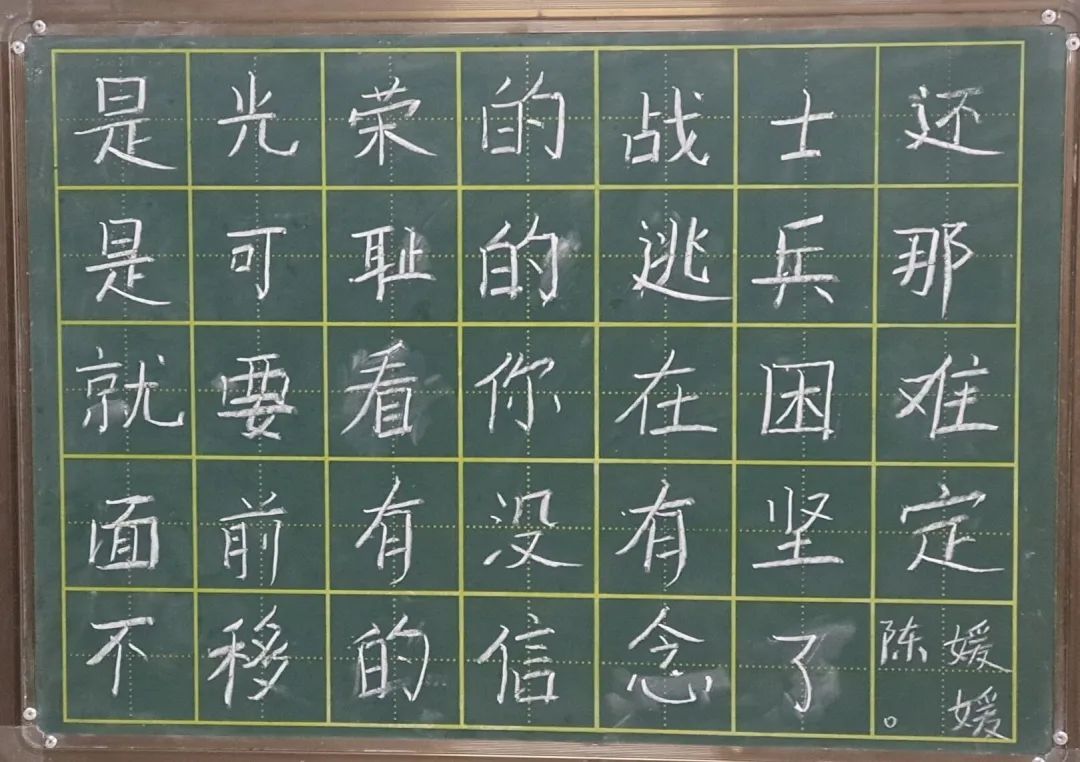 是光荣的战士还
是可耻的逃兵那
就要看你在困难
面前有没有坚定
不移的信念了。
陈媛媛